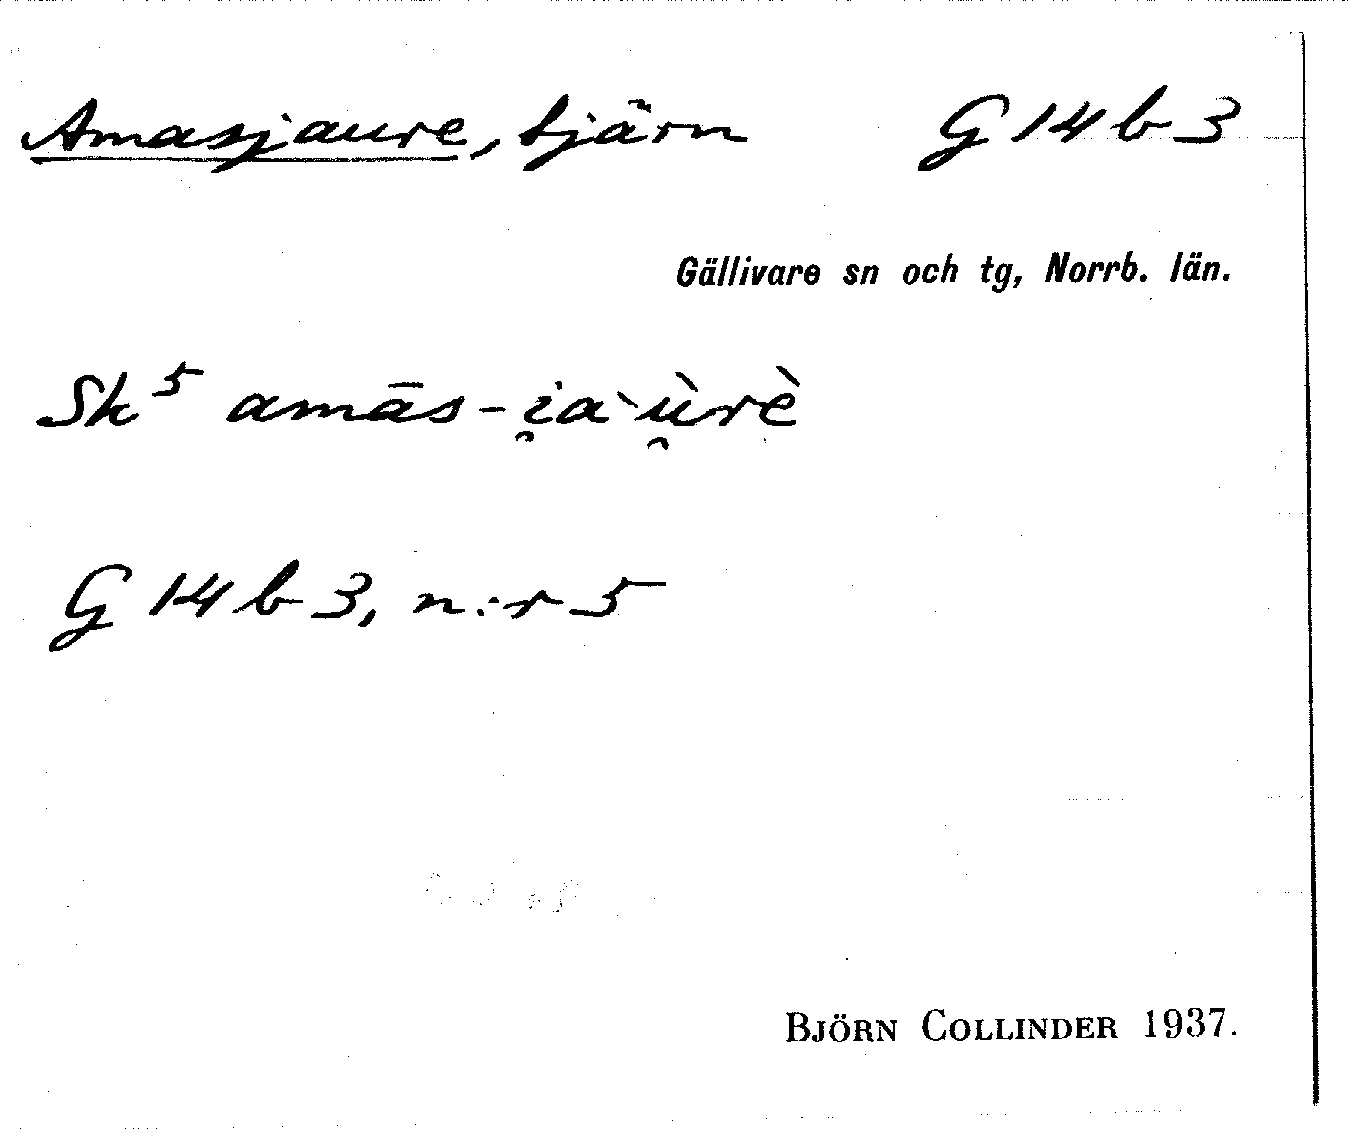 Amasjaure, tjärn G 14 b 3
Gällivare sn och tg, Norrb. län.
Sk⁵ amās-i̯aˋù̯rè
G 14 b 3, n:r 5
BJÖRN COLLINDER 1937.